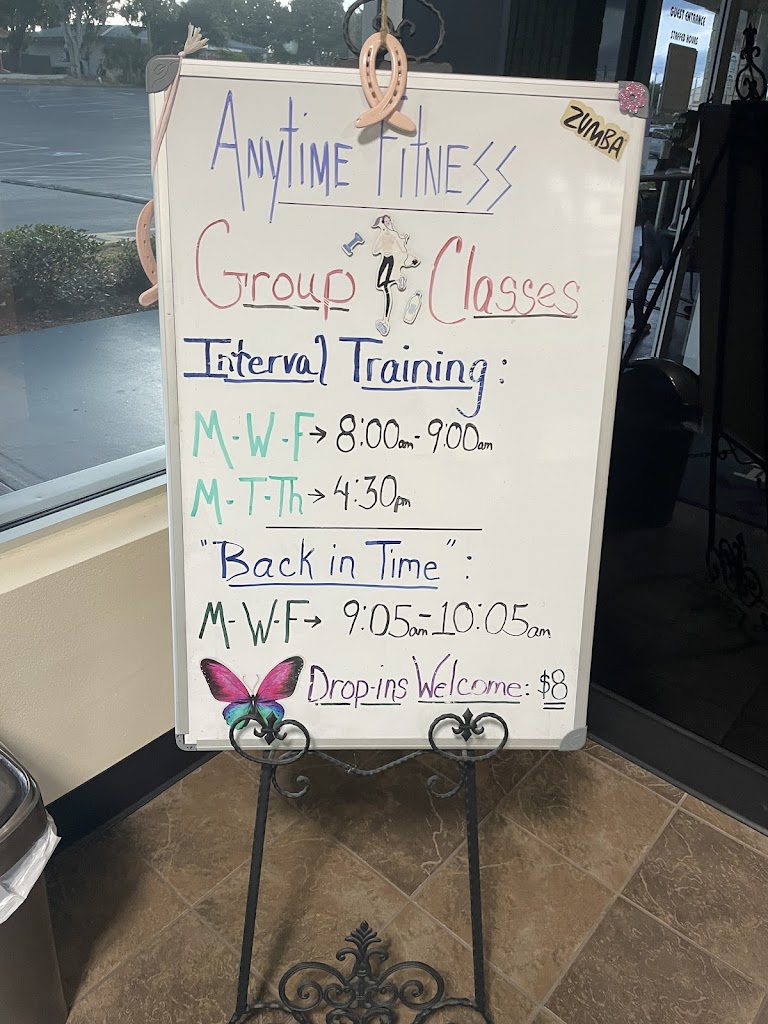 GUEST ENTRANCE
STAFFED HOURS
ZUMBA
ANYTIME FITNESS
GROUP Classes
Interval Training:
M-W-F→ 8:00am-9:00am
M-T-Th→ 4:30pm
"Back in Time":
M-W-F→ 9:05am-10:05am
Drop-ins Welcome: $8